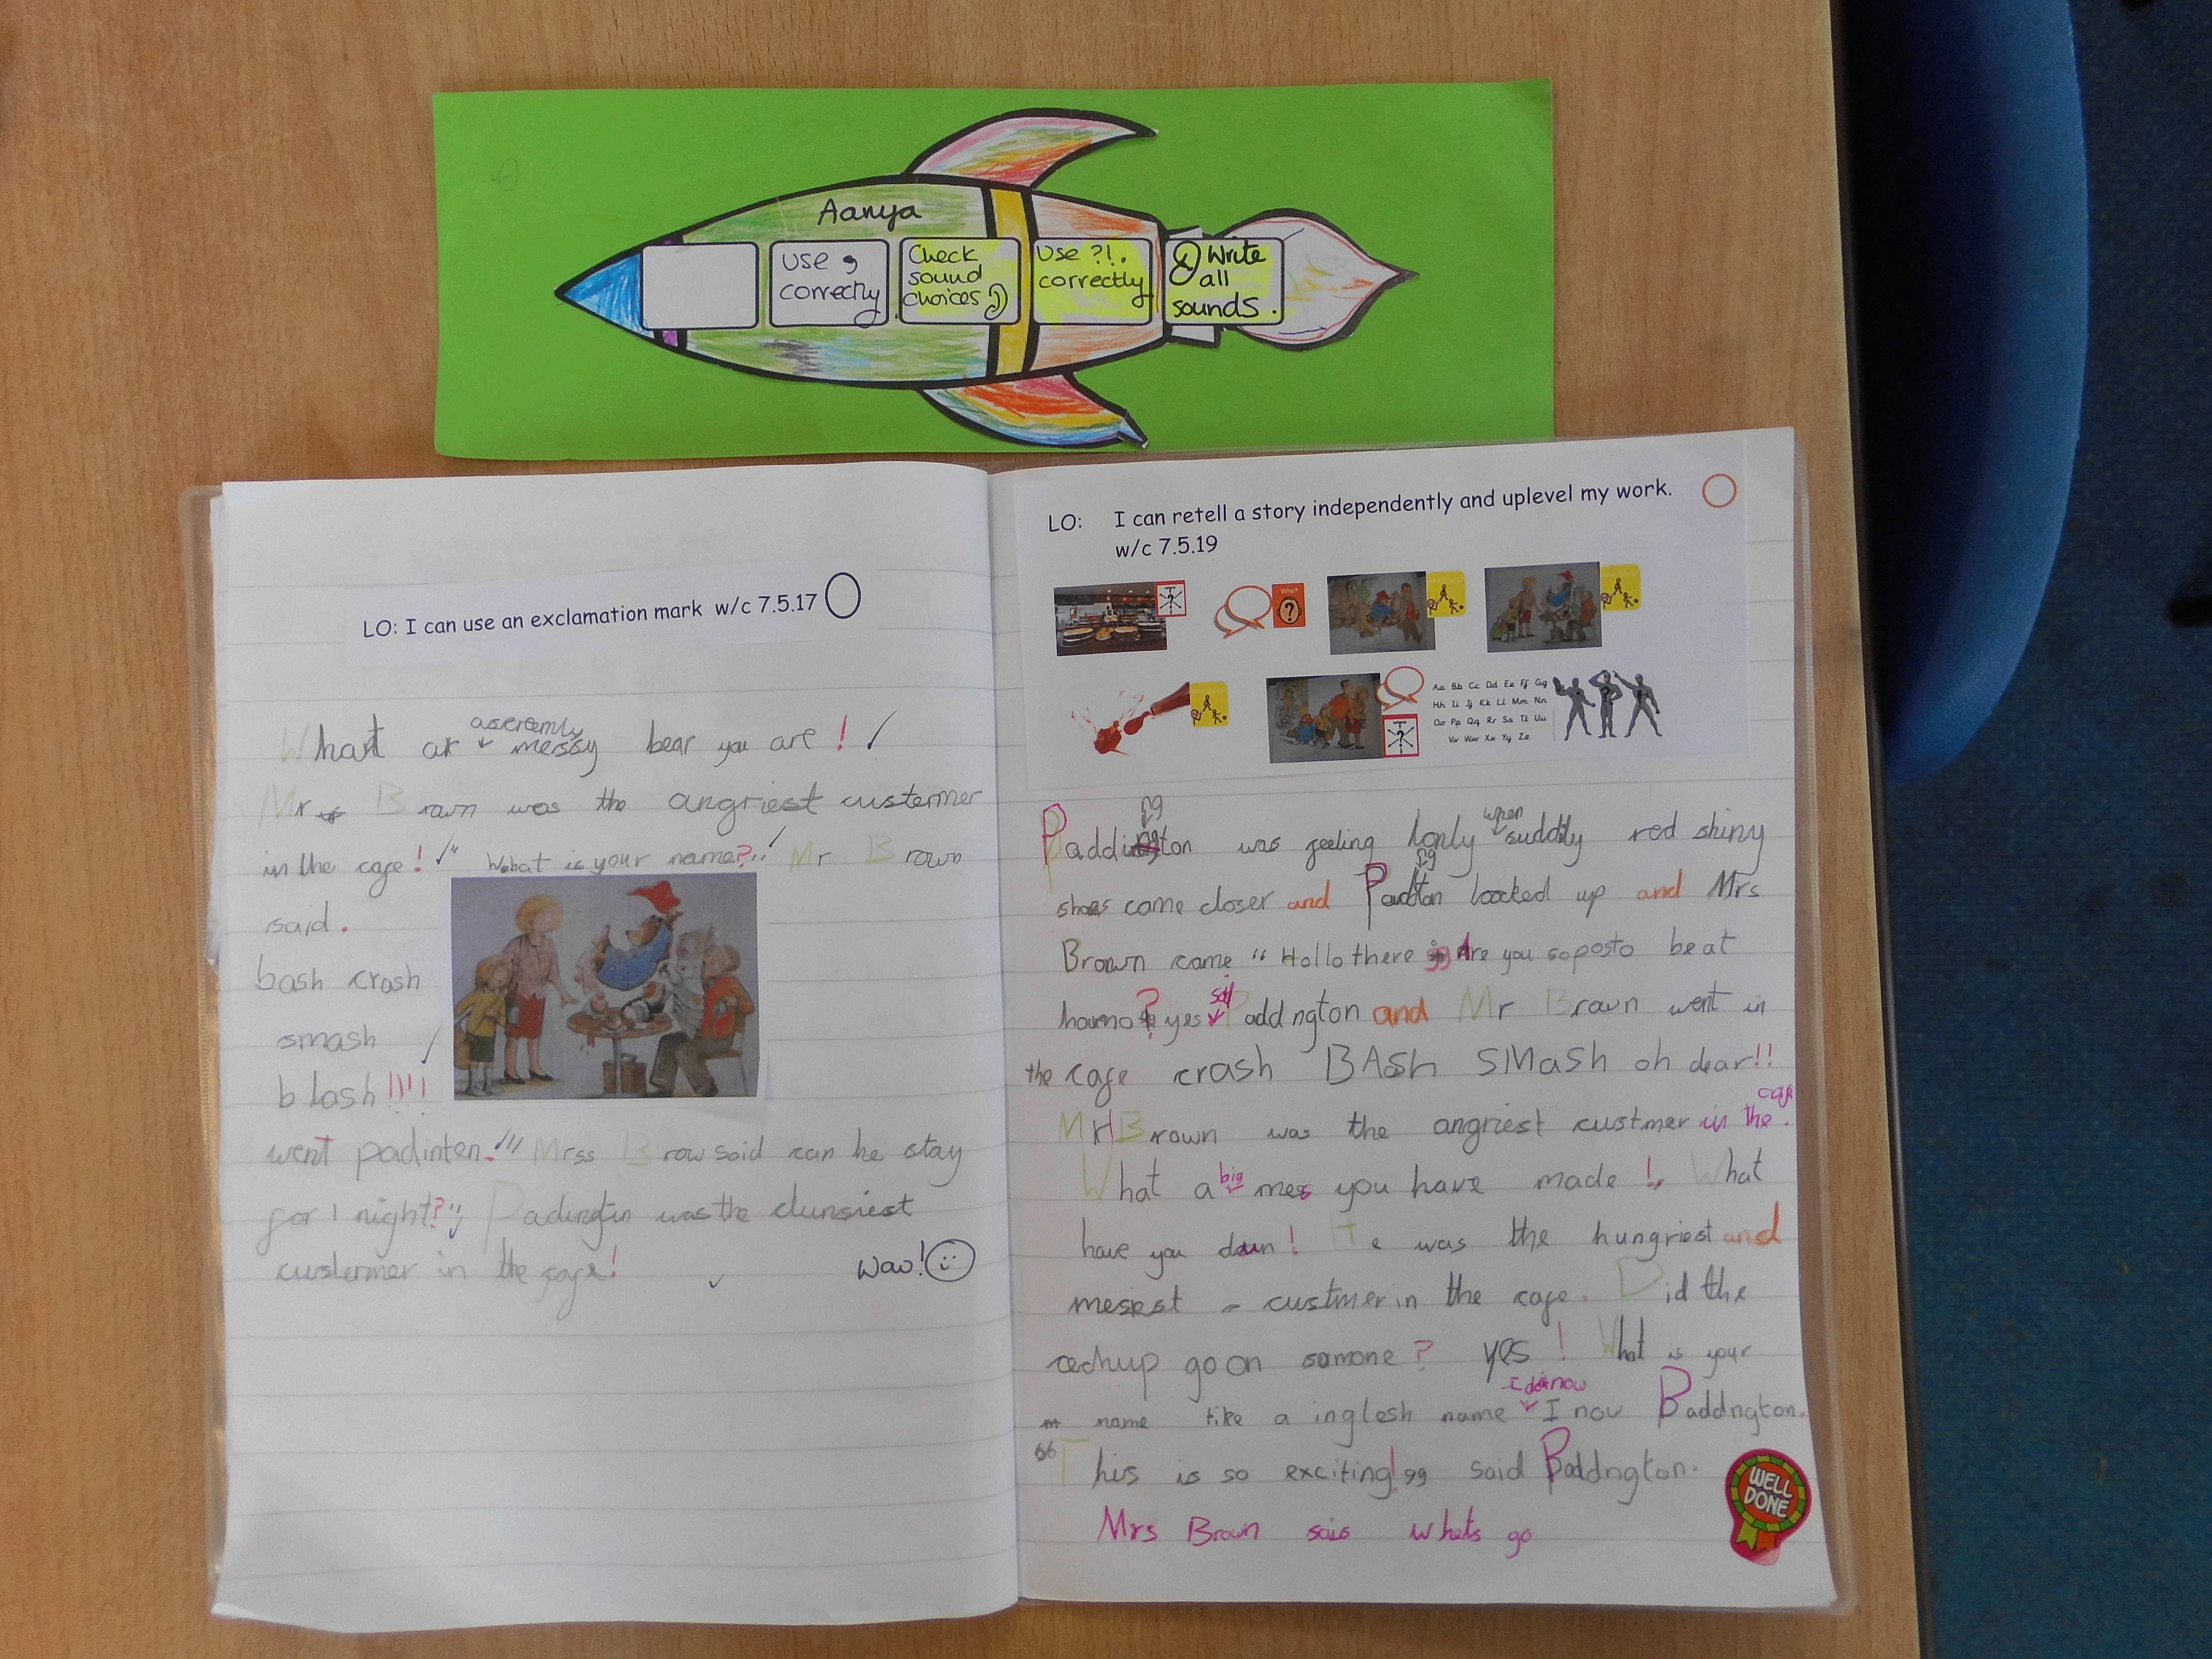 Aanya
use , correctly.
Check sound choices
Use ?!. correctly
Write all sounds.
LO: I can use an exclamation mark w/c 7.5.17
asceremly
What ar messy bear you are !
Mr Brown was the angriest custermer
in the cafe !" What is your name?" Mr Brown
said.
bash crash
smash
blash !!!!
went padinten." Mrss Brow said can he stay
for 1 night?" Padingtin was the clunsiest
custermer in the cafe!
Wow!
LO: I can retell a story independently and uplevel my work.
w/c 7.5.19
Who?
Aa Bb Cc Dd Ee Ff Gg
Hh Ii Jj Kk Ll Mm Nn
Oo Pp Qq Rr Ss Tt Uu
Vv Ww Xx Yy Zz
ng when
Paddington was feeling lonly suddly red shiny
ng
shoes came closer and Padton looked up and Mrs
Brown came " Hollo there " Are you soposto be at
said
houmo ? yes Paddngton and Mr Brown went in
the cafe crash BASh SMaSh oh dear!!
cafe
Mr Brown was the angriest custmer in the.
big
What a mes you have made ! What
have you dun ! He was the hungriest and
mesiest custmer in the cafe. Did the
cechup go on somone ? yes ! What is your
I dot now
name like a inglesh name I now Paddngton.
" This is so exciting! " said Paddngton.
Mrs Brown sais whats go
WELL DONE